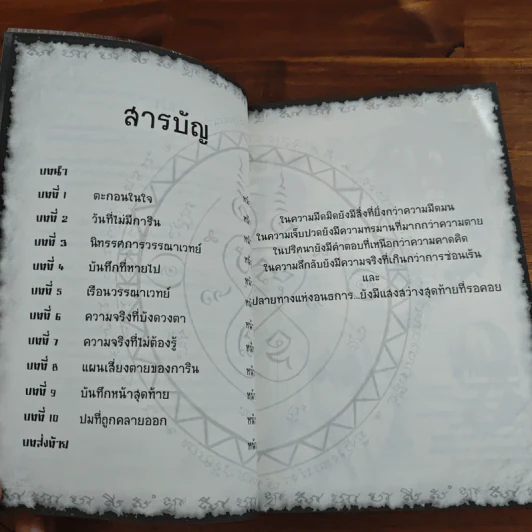 สารบัญ
บทนำ
บทที่ 1 ตะกอนในใจ
บทที่ 2 วันที่ไม่มีการิน
บทที่ 3 นิทรรศการวรรณาเวทย์
บทที่ 4 บันทึกที่หายไป
บทที่ 5 เรือนวรรณาเวทย์
บทที่ 6 ความจริงที่บังดวงตา
บทที่ 7 ความจริงที่ไม่ต้องรู้
บทที่ 8 แผนเสี่ยงตายของการิน
บทที่ 9 บันทึกหน้าสุดท้าย
บทที่ 10 ปมที่ถูกคลายออก
บทส่งท้าย
ในความมืดมิดยังมีสิ่งที่ยิ่งกว่าความมืดมน
ในความเจ็บปวดยังมีความทรมานที่มากกว่าความตาย
ในปริศนายังมีคำตอบที่เหนือกว่าความคาดคิด
ในความลึกลับยังมีความจริงที่เกินกว่าการซ่อนเร้น
และ
ปลายทางแห่งอนธการ...ยังมีแสงสว่างสุดท้ายที่รอคอย